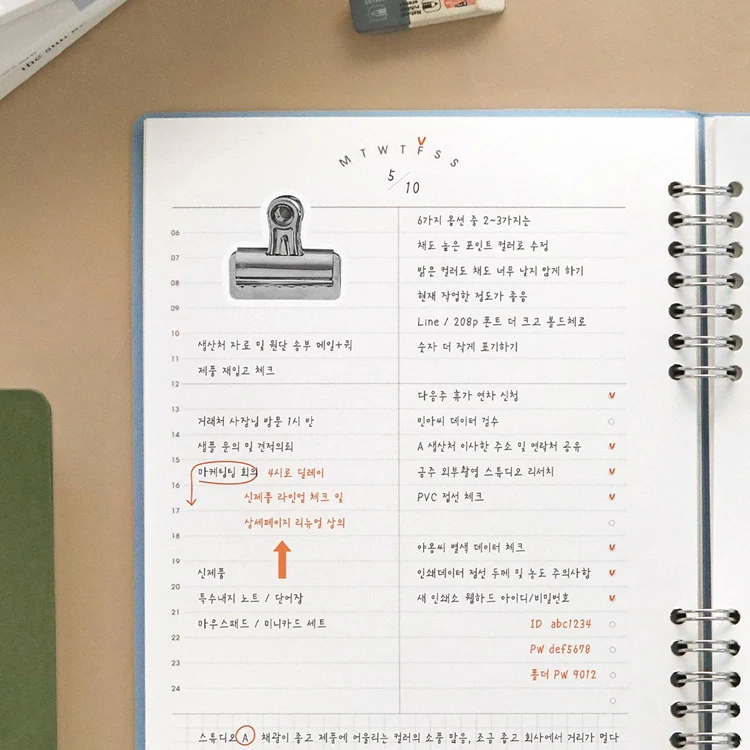 M T W T F S S
V
5/10
06
07
08
09
10
생산처 자료 및 원단 송부 메일+퀵
11
제품 재입고 체크
12
13
거래처 사장님 방문 1시 반
14
샘플 문의 및 견적의뢰
15
마케팅팀 회의 4시로 딜레이
16
신제품 라인업 체크 및
17
상세페이지 리뉴얼 상의
18
19
신제품
20
특수내지 노트 / 단어장
21
마우스패드 / 미니카드 세트
22
23
24
6가지 옵션 중 2~3가지는
채도 높은 포인트 컬러로 수정
밝은 컬러도 채도 너무 낮지 않게 하기
현재 작업한 정도가 좋음
Line / 208p 폰트 더 크고 볼드체로
숫자 더 작게 표기하기
다음주 휴가 연차 신청 V
민아씨 데이터 검수
A 생산처 이사한 주소 및 연락처 공유 V
금주 외부촬영 스튜디오 리서치 V
PVC 접선 체크 V
야옹씨 별색 데이터 체크 V
인쇄데이터 접선 두께 및 농도 주의사항 V
새 인쇄소 웹하드 아이디/비밀번호 V
ID abc1234
PW def5678
폴더 PW 9012
스튜디오 A 채광이 좋고 제품에 어울리는 컬러의 소품 많음, 조금 좁고 회사에서 거리가 멀다